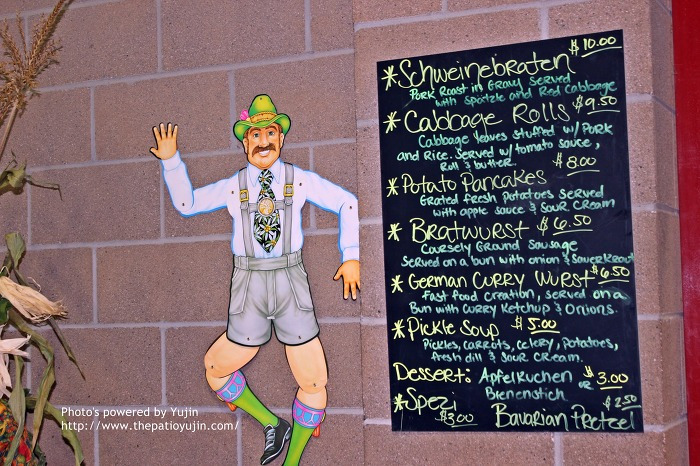 *Schweinebraten $10.00
Pork Roast in Gravy Served
with spatzle and Red Cabbage
*Cabbage Rolls $9.50
Cabbage leaves stuffed w/ Pork
and Rice. Served w/tomato sauce,
Roll & butter.
$8.00
*Potato Pancakes
Grated fresh Potatoes served
with apple sauce & sour cream
*Bratwurst $6.50
Coursely Ground Sausage
Served on a bun with onion & Sauerkraut
*German Curry Wurst $6.50
Fast food creation, served on a
Bun with Curry Ketchup & Onions.
*Pickle Soup $5.00
Pickles, carrots, celery, potatoes,
fresh dill & sour cream.
Dessert: Apfelkuchen or $3.00
Bienenstich
*Spezi $3.00
Bavarian Pretzel $2.50
Photo's powered by Yujin
http://www.thepatioyujin.com/